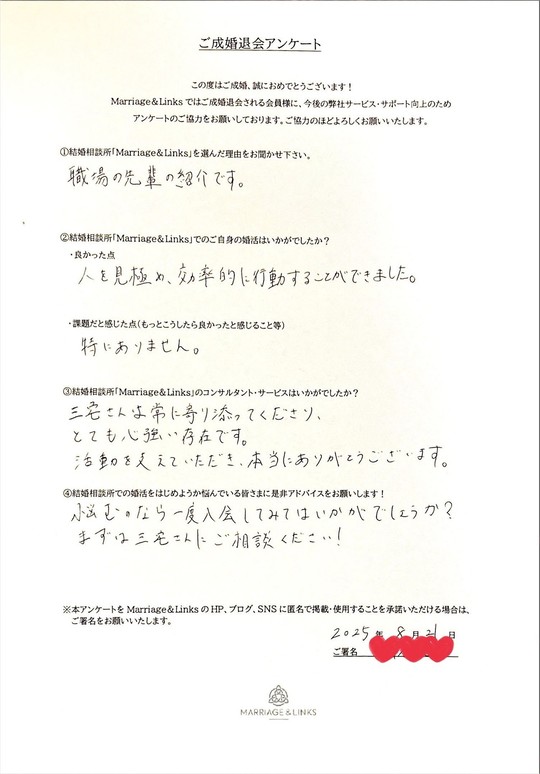 ご成婚退会アンケート
この度はご成婚、誠におめでとうございます！
Marriage＆Linksではご成婚退会される会員様に、今後の弊社サービス・サポート向上のため
アンケートのご協力をお願いしております。ご協力のほどよろしくお願いいたします。
①結婚相談所「Marriage＆Links」を選んだ理由をお聞かせ下さい。
職場の先輩の紹介です。
②結婚相談所「Marriage＆Links」でのご自身の婚活はいかがでしたか？
・良かった点
人を見極め、効率的に行動することができました。
・課題だと感じた点（もっとこうしたら良かったと感じること等）
特にありません。
③結婚相談所「Marriage＆Links」のコンサルタント・サービスはいかがでしたか？
三宅さんは常に寄り添ってくださり、
とても心強い存在です。
活動を支えていただき、本当にありがとうございます。
④結婚相談所での婚活をはじめようか悩んでいる皆さまに是非アドバイスをお願いします！
悩むのなら一度入会してみてはいかがでしょうか？
まずは三宅さんにご相談ください！
※本アンケートをMarriage＆LinksのHP、ブログ、SNSに匿名で掲載・使用することを承諾いただける場合は、
ご署名をお願いいたします。
2025年 8月 21日
ご署名
MARRIAGE＆LINKS